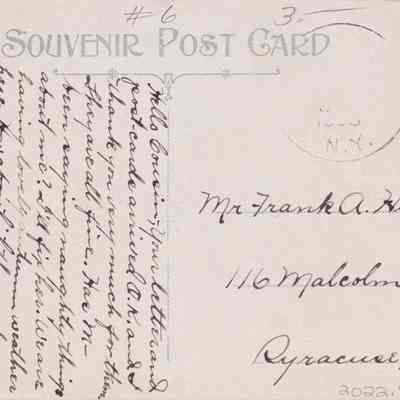 #6
3.—
SOUVENIR POST CARD
Hello Cousin; Your letter and
post-cards arrived O.K. and I
thank you very much for them
They are all fine. Has M-
been saying naughty things
about me? I'll fix her. We are
having lovely autumn weather
here
N.Y.
Mr Frank A. H
116 Malcolm
Syracuse,
2022.